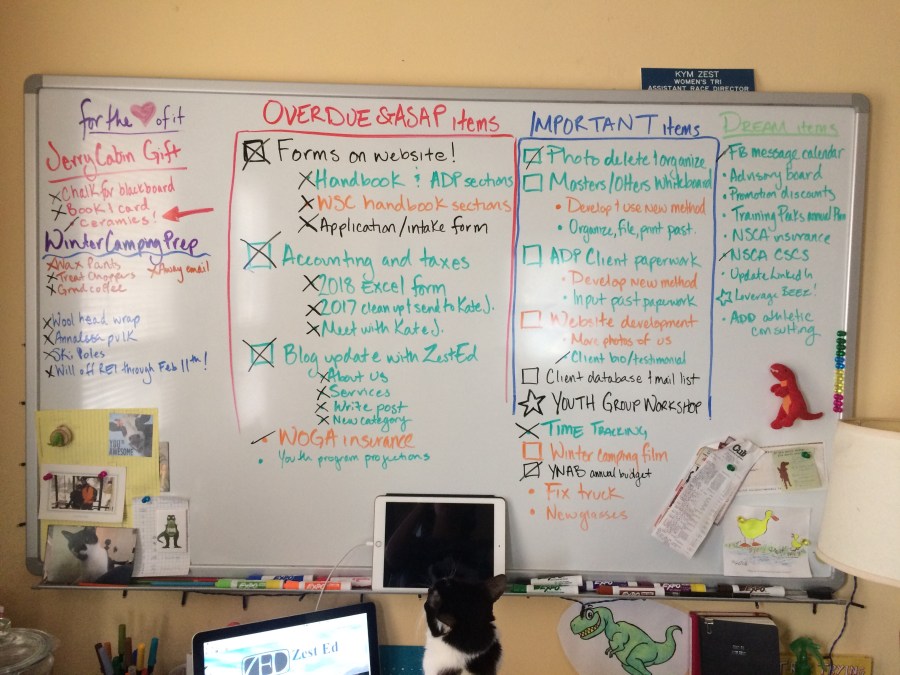 KYM ZEST
WOMEN'S TRI
ASSISTANT RACE DIRECTOR
for the of it
Jerry Cabin Gift
Chalk for blackboard
Book & card
Ceramics!
Winter Camping Prep
Wax Pants
Away email
Treat Choppers
Grnd coffee
Wool head wrap
Annalisa pulk
Ski Poles
Will off REI through Feb 11th!
OVERDUE & ASAP items
Forms on website!
Handbook & ADP sections
WSC handbook sections
Application/intake form
Accounting and taxes
2018 Excel form
2017 clean up & send to Kate J.
Meet with Kate J.
Blog update with ZestEd
About us
Services
Write post
New category
WOGA insurance
Youth program projections
IMPORTANT items
Photo delete & organize
Masters/Others Whiteboard
Develop & use New method
Organize, file, print past.
ADP Client paperwork
Develop new method
Input past paperwork
Website development
More photos of us
Client bio/testimonial
Client database & mail list
YOUTH GROUP WORKSHOP
TIME TRACKING
Winter camping film
YNAB annual budget
Fix truck
New glasses
DREAM items
FB message calendar
Advisory board
Promotion discounts
Training Peaks annual Plan
NSCA insurance
NSCA CSCS
Update Linked In
Leverage BEEZ!
ADD athletic
consulting
YOU'RE
AWESOME
EXPO
EXPO
EXPO
EXPO
ZED Zest Ed